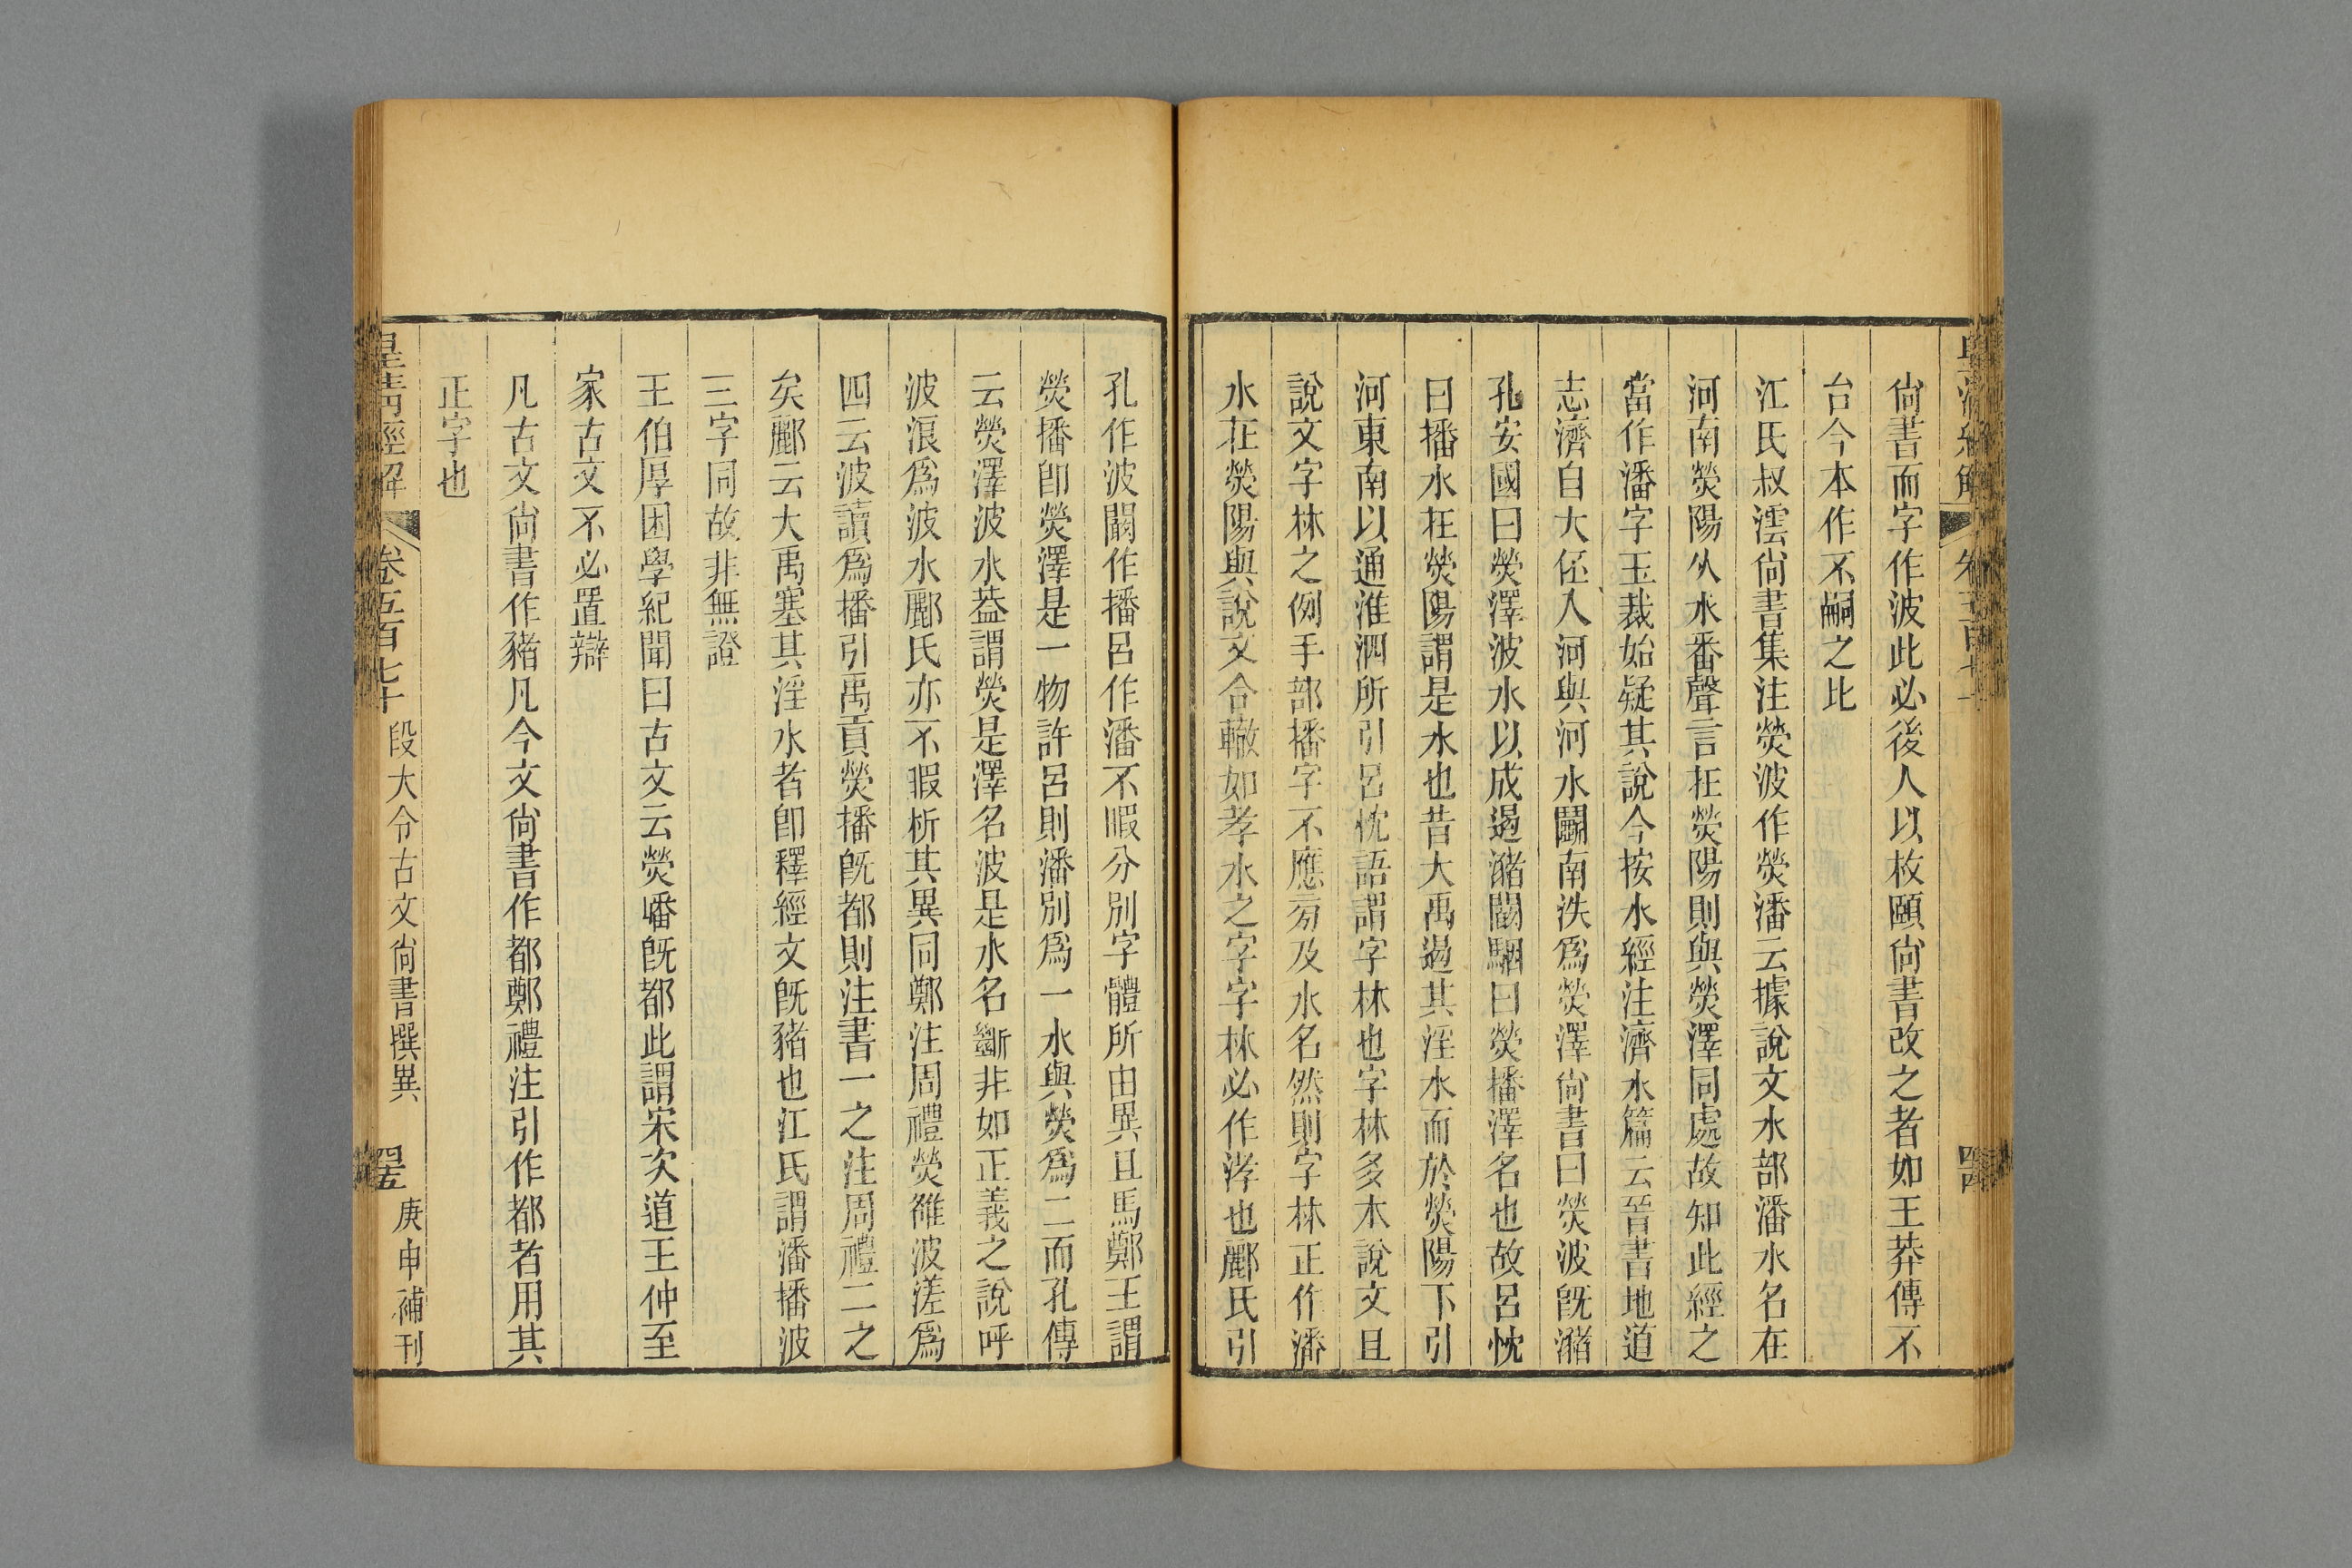 尙書而字作波此必後人以枚頤尙書改之者如王莽傳不
台今本作不嗣之比
江氏叔澐尙書集注熒波作熒潘云據說文水部潘水名在
河南熒陽从水番聲言在熒陽則與熒澤同處故知此經之
當作潘字玉裁始疑其說今按水經注濟水篇云晉書地道
志濟自大伾入河與河水鬭南泆爲熒澤尙書曰熒波旣瀦
孔安國曰熒澤波水以成遏瀦闞駰曰熒播澤名也故呂忱
曰播水在熒陽謂是水也昔大禹遏其淫水而於熒陽下引
河東南以通淮泗所引呂忱語謂字林也字林多本說文且
說文字林之例手部播字不應旁及水名然則字林正作潘
水在熒陽與說文合轍如孝水之字字林必作涍也酈氏引
孔作波闞作播呂作潘不暇分別字體所由異且馬鄭王謂
熒播卽熒澤是一物許呂則潘別爲一水與熒爲二而孔傳
云熒澤波水葢謂熒是澤名波是水名斷非如正義之說呼
波浪爲波水酈氏亦不暇析其異同鄭注周禮熒雒波溠爲
四云波讀爲播引禹貢熒播旣都則注書一之注周禮二之
矣酈云大禹塞其淫水者卽釋經文旣豬也江氏謂潘播波
三字同故非無證
王伯厚困學紀聞曰古文云熒嶓旣都此謂宋次道王仲至
家古文不必置辯
凡古文尙書作豬凡今文尙書作都鄭禮注引作都者用其
正字也
皇淸經解 卷五百七十 段大令古文尙書撰異 四五 庚申補刊